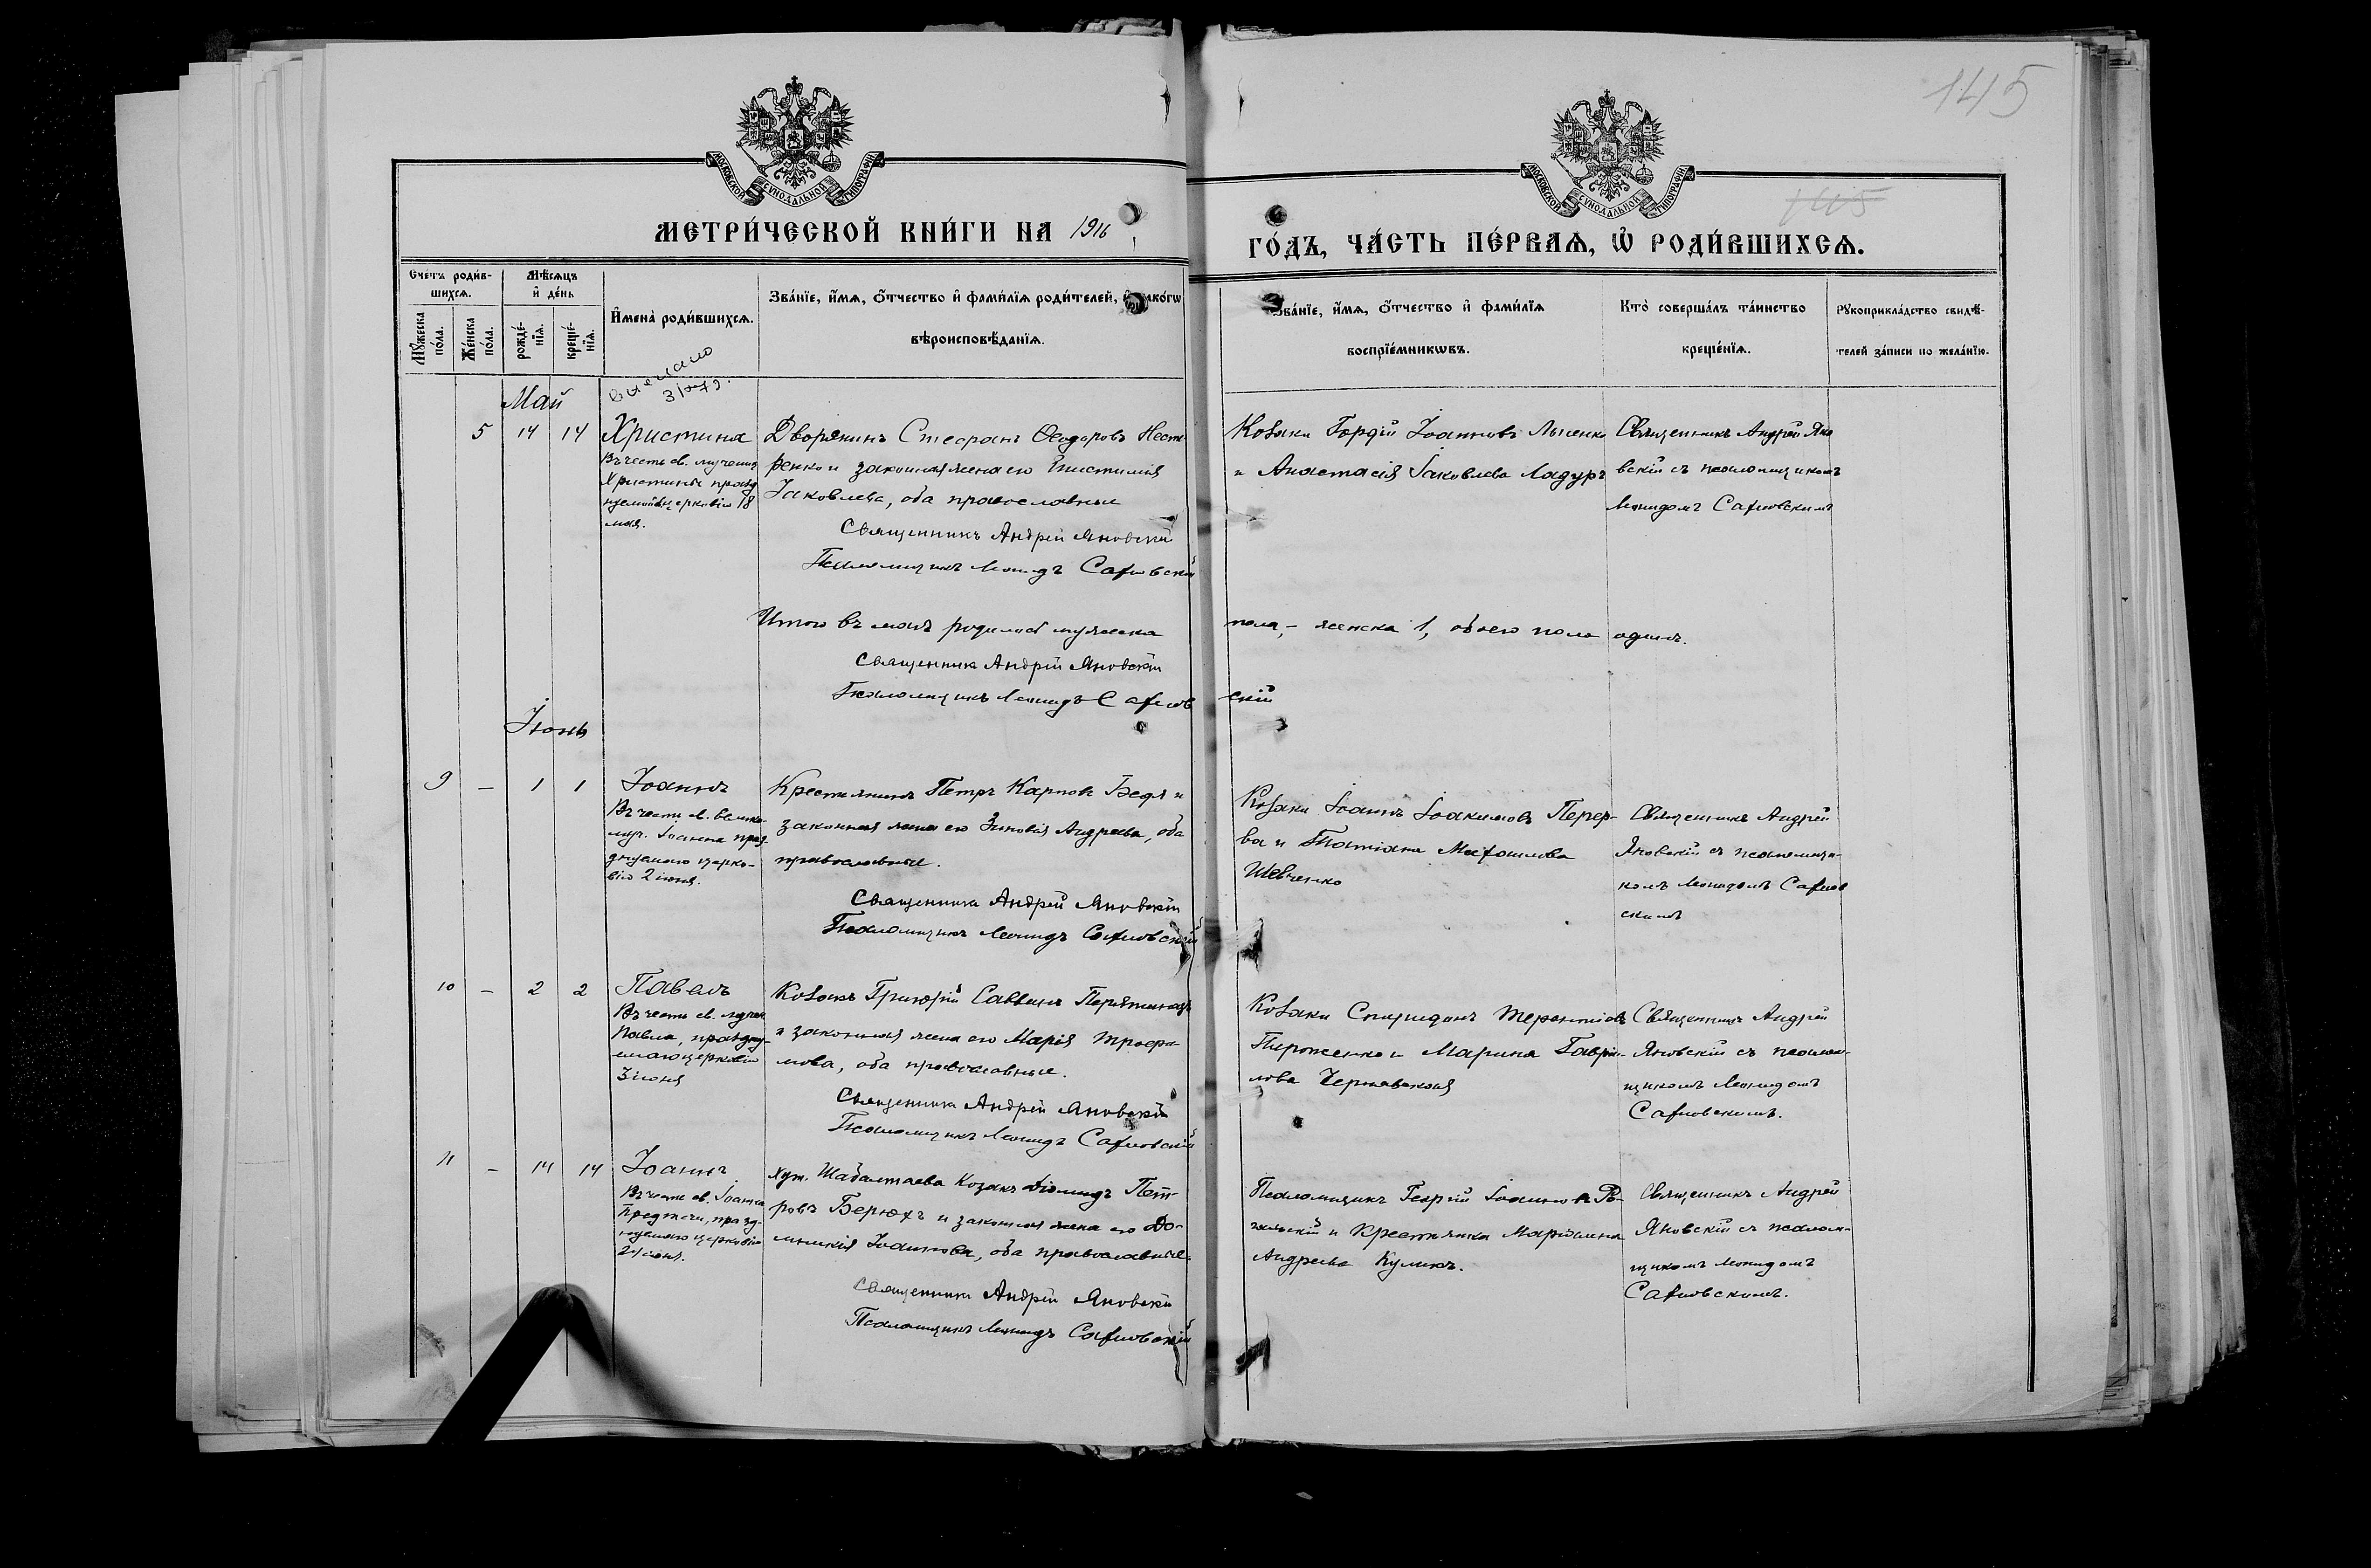 145
145
МОСКОВСКОЙ СѴНОДАЛЬНОЙ ТИПОГРАФІИ
МОСКОВСКОЙ СѴНОДАЛЬНОЙ ТИПОГРАФІИ
МЕТРИ́ЧЕСКОЙ КНИ́ГИ НА 1916
ГО́ДЪ, ЧА́СТЬ ПЕ́РВАѦ, Ѡ РОДИ́ВШИХСѦ.
Сче́тъ роди́в-
шихсѧ.
Мѣ́сѧцъ
и҆ де́нь
Мꙋ́жеска по́ла.
Же́нска по́ла.
рожде́-
нїѧ.
креще́-
нїѧ.
И҆мена̀ роди́вшихсѧ.
Зва́нїе, и҆́мѧ, ѻ҆́тчество и҆ фами́лїѧ роди́телей, и҆ како́гѡ
вѣроисповѣ́данїѧ.
Зва́нїе, и҆́мѧ, ѻ҆́тчество и҆ фами́лїѧ
воспрїе́мникѡвъ.
Кто̀ соверша́лъ та́инство
креще́нїѧ.
Рꙋкоприкла́дство свидѣ́-
телей за́писи по жела́нїю.
Май
5 14 14 Христина
Въ честь св. мучениц
Христины празд
нуемой церковію 18
мая.
Дворянинъ Стефанъ Ѳеодоровъ Несте
ренко и законная жена его Епистимія
Іаковлева, оба православные
Священникъ Андрей Яновскій
Псаломщикъ Леонидъ Сафновскій
Козаки Гордій Іоанновъ Лысенко
и Анастасія Іаковлева Ладуръ
Священникъ Андрей Яно
вскій съ псаломщикомъ
Леонидомъ Сафновскимъ
Итого въ маѣ родилось мужеска
пола, – женска 1, обоего пола одинъ.
Священникъ Андрей Яновскій
Псаломщикъ Леонидъ Сафнов
скій
Іюнь
9 – 1 1 Іоаннъ
Въ честь св. велико-
муч. Іоанна праз-
днуемаго церко-
вію 2 іюня.
Крестьянинъ Петръ Карповъ Бедя и
законная жена его Зиновія Андреева, оба
православные.
Священникъ Андрей Яновскій
Псаломщикъ Леонидъ Сафновскій
Козаки Іоаннъ Іоакимовъ Перер-
ва и Татіана
Шевченко
Священникъ Андрей
Яновскій съ псаломщи-
комъ Леонидомъ Сафнов
скимъ
10 – 2 2 Павелъ
Въ честь св. мучен.
Павла, праздну-
емаго церковію
3 іюня
Козакъ Григорій Саввинъ
и законная жена его Марія Трофи
мова, оба православные.
Священникъ Андрей Яновскій
Псаломщикъ Леонидъ Сафновскій
Козаки Спиридонъ Терентіевъ
Пироженко и Марина Гаврі-
лова Чернявская
Священникъ Андрей
Яновскій съ псалом-
щикомъ Леонидомъ
Сафновскимъ.
11 – 14 14 Іоаннъ
Въ честь св. Іоанна
Предтечи, празд-
нуемаго церковію
24 іюня.
Хут. Шабалтаева Козакъ Діомидъ Пет-
ровъ Берюхъ и законная жена его До-
мникія Іоаннова, оба православные.
Священникъ Андрей Яновскій
Псаломщикъ Леонидъ Сафновскій
Псаломщикъ Георгій Іоанновъ
и Крестьянка Маріамна
Андреева Куликъ.
Священникъ Андрей
Яновскій съ псалом-
щикомъ Леонидомъ
Сафновскимъ.